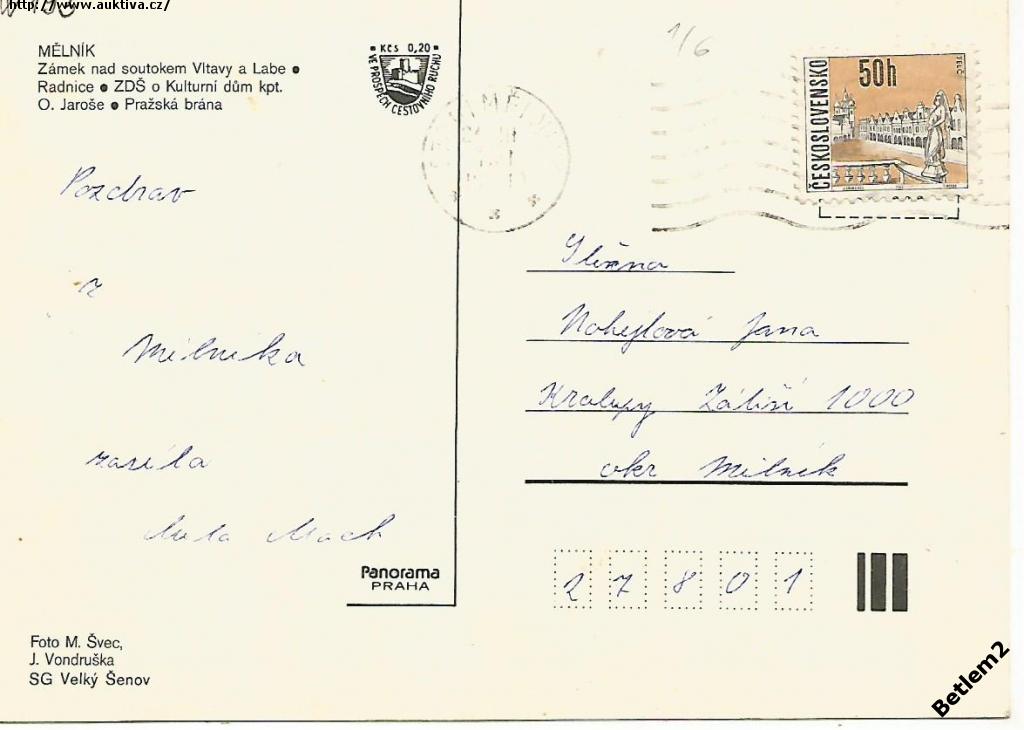 http://www.auktiva.cz/
MĚLNÍK
Zámek nad soutokem Vltavy a Labe ●
Radnice ● ZDŠ o Kulturní dům kpt.
O. Jaroše ● Pražská brána
Kčs 0,20
VE PROSPĚCH CESTOVNÍHO RUCHU
1/6
ČESKOSLOVENSKO
50h
TELČ
Pozdrav
z
Mělníka
zasílá
Mach
Slečna
Nohejlová Jana
Kralupy Zátiší 1000
okr Mělník
27801
Panorama
PRAHA
Foto M. Švec,
J. Vondruška
SG Velký Šenov
Betlem2